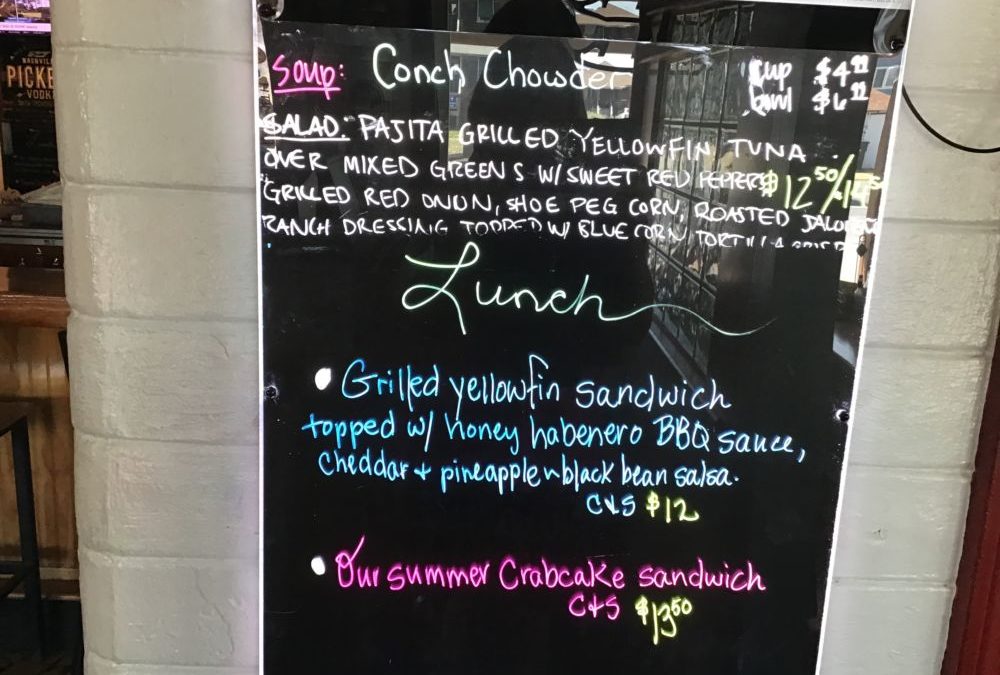 NASHVILLE
PICKE
VODK
Soup: Conch Chowder
cup $4.99
bowl $6.99
SALAD: PAJITA GRILLED YELLOWFIN TUNA
OVER MIXED GREENS W/ SWEET RED PEPPERS $12.50/14
GRILLED RED ONION, SHOE PEG CORN, ROASTED
RANCH DRESSING TOPPED W/ BLUE CORN TORTILLA
Lunch
• Grilled yellowfin sandwich
topped w/ honey habenero BBQ sauce,
cheddar + pineapple ~ black bean salsa.
C+S $12
• Our summer Crabcake sandwich
C+S $13.50